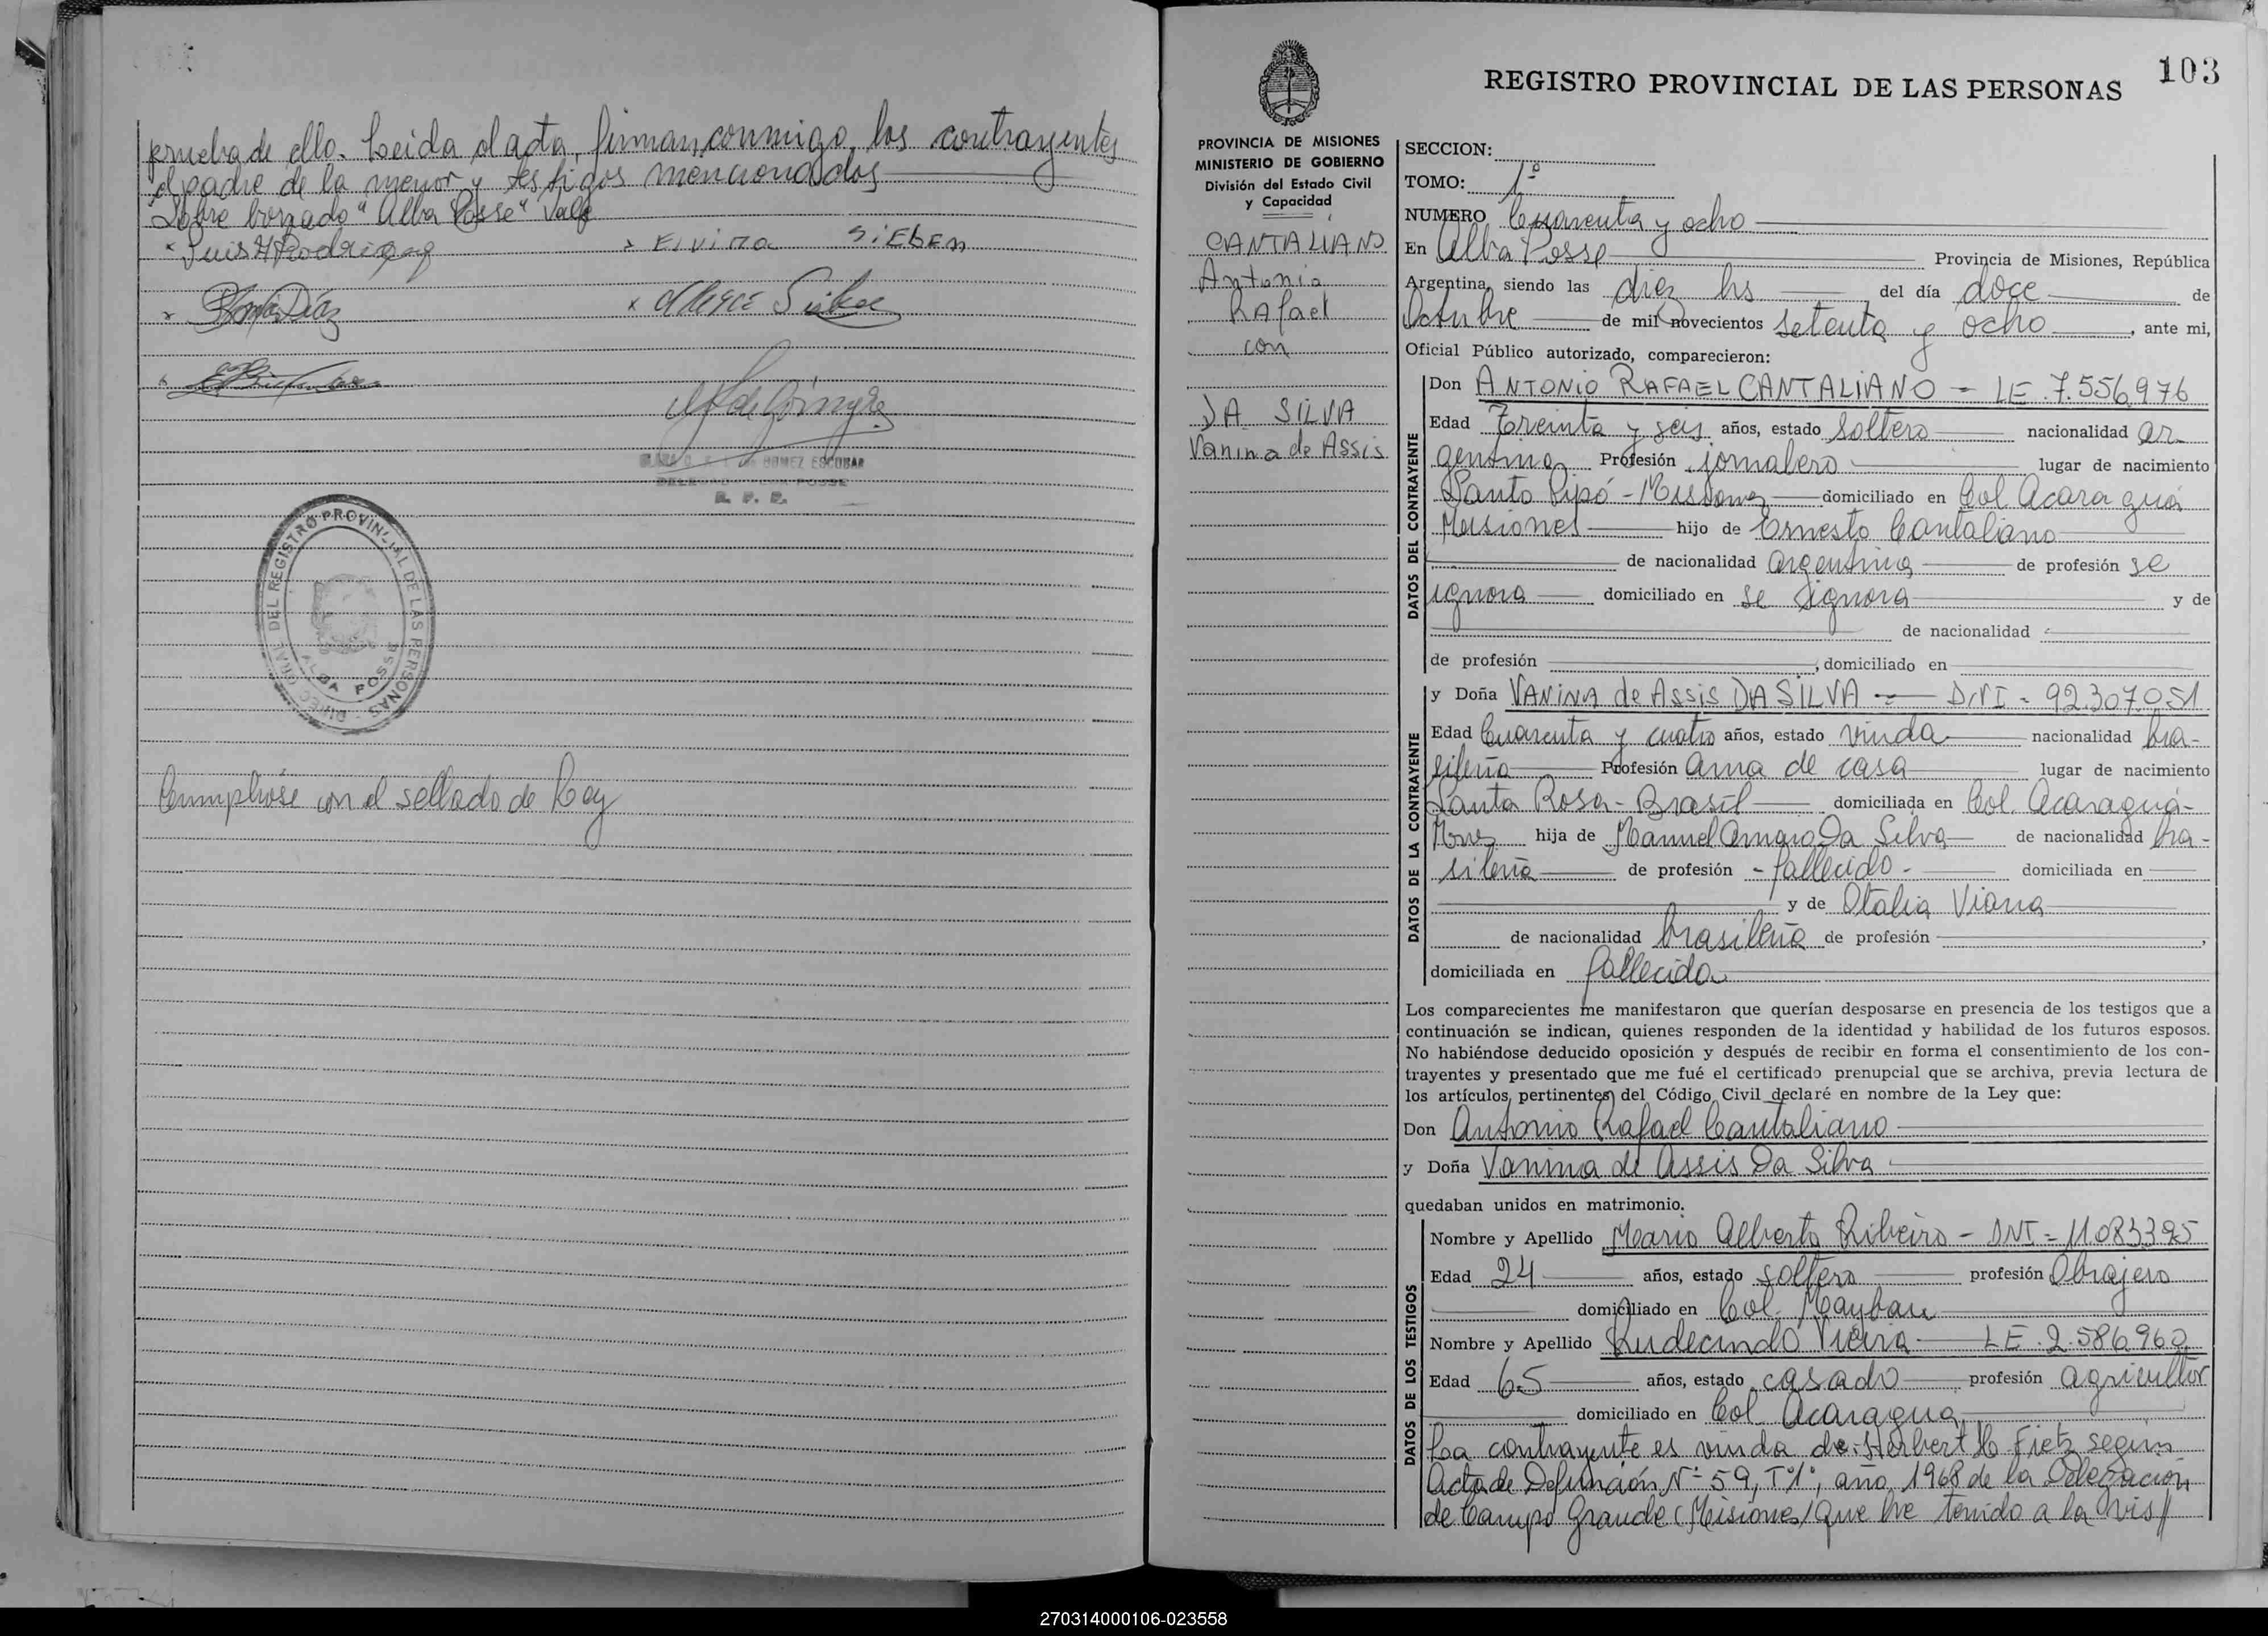 prueba de ello. Leida el acta, firman conmigo, los contrayentes
el padre de la menor y testigos mencionados
Sobre borrado "Alba Posse" Vale
x Luis A Rodriguez
x ELVIRA SIEBEN
x Díaz
x
GOMEZ ESCOBAR
R. P. P.
DIREC. GRAL. DEL REGISTRO PROVINCIAL DE LAS PERSONAS
ALBA POSSE
Cumplióse con el sellado de Ley
103
REGISTRO PROVINCIAL DE LAS PERSONAS
PROVINCIA DE MISIONES
MINISTERIO DE GOBIERNO
División del Estado Civil
y Capacidad
CANTALIANO
Antonio
Rafael
con
DA SILVA
Vanina de Assis
SECCION:
TOMO: 1º
NUMERO Cuarenta y ocho
En Alba Posse Provincia de Misiones, República
Argentina, siendo las diez hs del día doce de
Octubre de mil novecientos setenta y ocho, ante mi,
Oficial Público autorizado, comparecieron:
DATOS DEL CONTRAYENTE
Don ANTONIO RAFAEL CANTALIANO - LE. 7.556.976
Edad Treinta y seis años, estado soltero nacionalidad ar-
gentina Profesión jornalero lugar de nacimiento
Santo Pipó - Misiones domiciliado en Col Acaraguá
Misiones hijo de Ernesto Cantaliano
de nacionalidad argentina de profesión se
ignora domiciliado en se ignora y de
de nacionalidad
de profesión , domiciliado en
DATOS DE LA CONTRAYENTE
y Doña VANINA de Assis DA SILVA = DNI - 92.307.051
Edad Cuarenta y cuatro años, estado viuda nacionalidad bra-
sileña Profesión ama de casa lugar de nacimiento
Santa Rosa - Brasil domiciliada en Col. Acaraguá-
Mnes hija de Manuel Amaro Da Silva de nacionalidad bra-
sileña de profesión - fallecido - domiciliada en
y de Otalia Viana
de nacionalidad brasileña de profesión ,
domiciliada en fallecida
Los comparecientes me manifestaron que querían desposarse en presencia de los testigos que a
continuación se indican, quienes responden de la identidad y habilidad de los futuros esposos.
No habiéndose deducido oposición y después de recibir en forma el consentimiento de los con-
trayentes y presentado que me fué el certificado prenupcial que se archiva, previa lectura de
los artículos pertinentes del Código Civil declaré en nombre de la Ley que:
Don Antonio Rafael Cantaliano
y Doña Vanina de Assis Da Silva
quedaban unidos en matrimonio.
DATOS DE LOS TESTIGOS
Nombre y Apellido Mario Alberto Ribeiro - DNI = 11.083395
Edad 24 años, estado soltero profesión Obrajero
domiciliado en Col. Mayban
Nombre y Apellido Rudecindo Vieira LE. 2.586.960
Edad 65 años, estado casado profesión agricultor
domiciliado en Col Acaragua
La contrayente es viuda de Herbert H Fietz según
Acta de Defunción Nº 59, Tº 1º, año 1968 de la Delegación
de Campo Grande (Misiones) que he tenido a la vis//
270314000106-023558